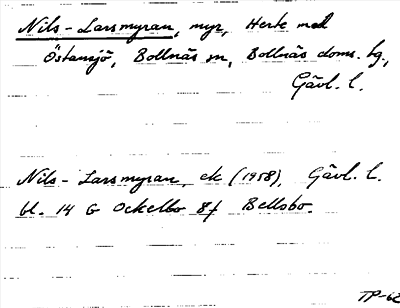 Nils-Larsmyran, myr, Herte med
Östansjö, Bollnäs sn, Bollnäs doms. tg.,
Gävl. l.
Nils-Larsmyran, ek (1958), Gävl. l.
bl. 14 G Ockelbo 8f Bellsbo.
TP-62